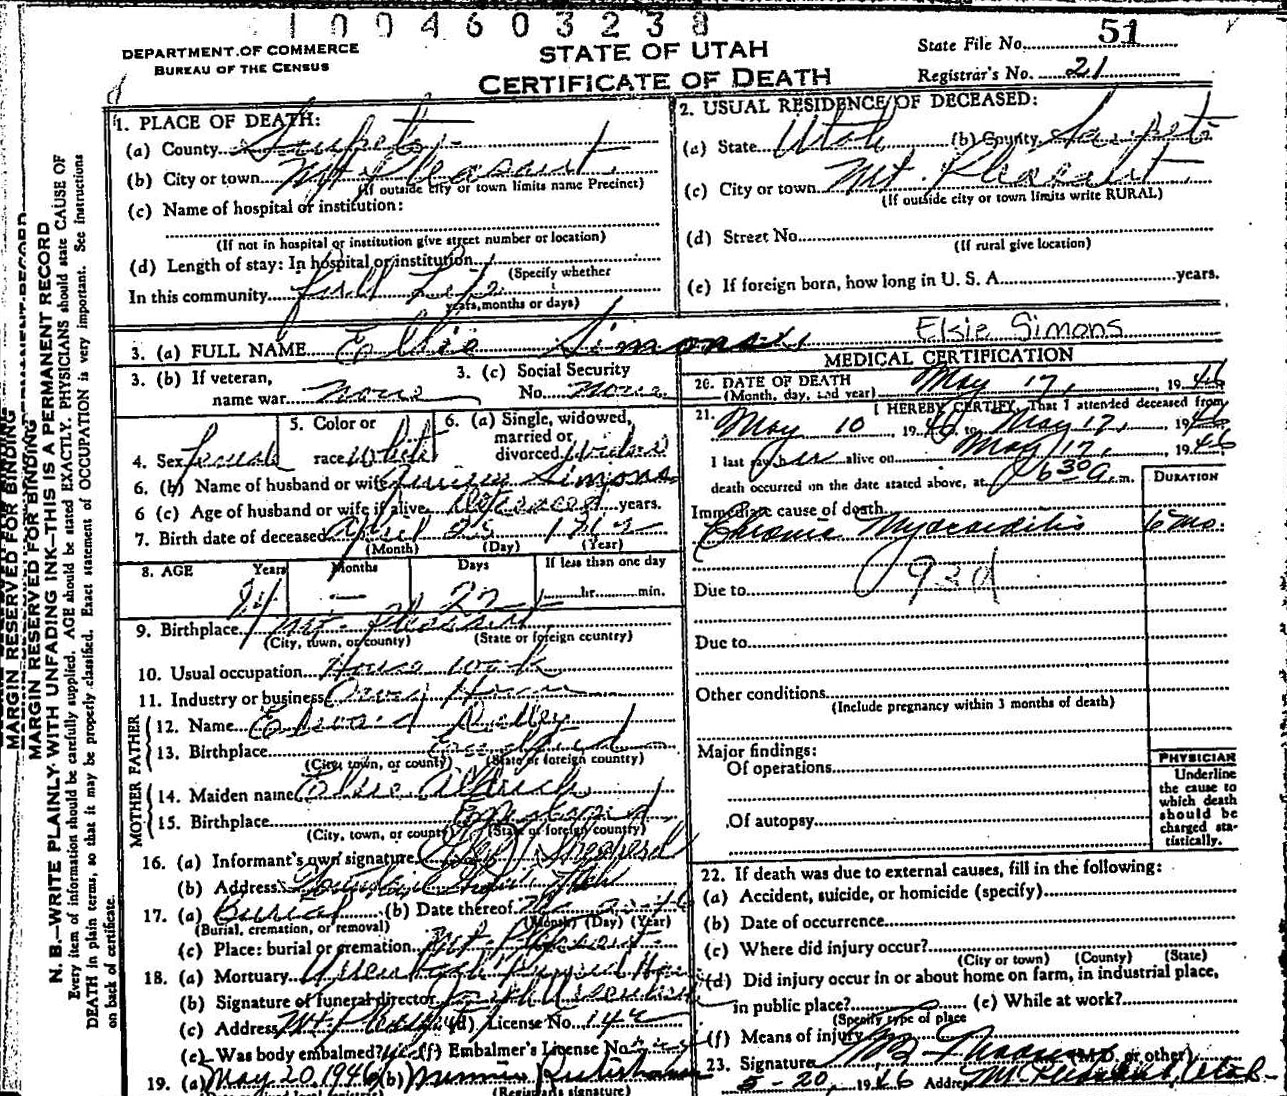 1 0 0 4 6 0 3 2 3 8
DEPARTMENT OF COMMERCE
BUREAU OF THE CENSUS
STATE OF UTAH
CERTIFICATE OF DEATH
State File No. 51
Registrar's No. 21
MARGIN RESERVED FOR BINDING
MARGIN RESERVED FOR BINDING
N. B.—WRITE PLAINLY WITH UNFADING INK—THIS IS A PERMANENT RECORD
Every item of information should be carefully supplied. AGE should be stated EXACTLY. PHYSICIANS should state CAUSE OF
DEATH in plain terms, so that it may be properly classified. Exact statement of OCCUPATION is very important. See instructions
on back of certificate.
1. PLACE OF DEATH:
(a) County Sanpete
(b) City or town Mt Pleasant
(If outside city or town limits name Precinct)
(c) Name of hospital or institution:
(If not in hospital or institution give street number or location)
(d) Length of stay: In hospital or institution
(Specify whether
In this community full Life
years, months or days)
2. USUAL RESIDENCE OF DECEASED:
(a) State Utah (b) County Sanpete
(c) City or town Mt. Pleasant
(If outside city or town limits write RURAL)
(d) Street No.
(If rural give location)
(e) If foreign born, how long in U. S. A. years.
3. (a) FULL NAME Elsie Simons Elsie Simons
3. (b) If veteran, name war none
3. (c) Social Security No. none
4. Sex female
5. Color or race White
6. (a) Single, widowed, married or divorced Widow
6. (b) Name of husband or wife Simons
6 (c) Age of husband or wife if alive Deceased years.
7. Birth date of deceased April 25
(Month) (Day) (Year)
8. AGE Years Months Days If less than one day
— 22 hr. min.
9. Birthplace Mt. Pleasant
(City, town, or county) (State or foreign country)
10. Usual occupation House work
11. Industry or business Own Home
FATHER
12. Name Edward
13. Birthplace England
(City, town, or county) (State or foreign country)
MOTHER
14. Maiden name Elsie Aldrich
15. Birthplace England
(City, town, or county) (State or foreign country)
16. (a) Informant's own signature Shepherd
(b) Address Utah
17. (a) Burial (b) Date thereof
(Burial, cremation, or removal) (Month) (Day) (Year)
(c) Place: burial or cremation Mt. Pleasant
18. (a) Mortuary
(b) Signature of funeral director
(c) Address Mt Pleasant (d) License No. 142
(e) Was body embalmed? (f) Embalmer's License No.
19. (a) May 20, 1946 (b)
(Registrar's signature)
MEDICAL CERTIFICATION
20. DATE OF DEATH May 17, 1946
(Month, day, and year)
21. I HEREBY CERTIFY, That I attended deceased from
May 10, 1946 to May 17, 1946
I last saw her alive on May 17, 1946
death occurred on the date stated above, at 6 30 a. m.
DURATION
Immediate cause of death
Chronic Myocarditis 6 mo.
93d
Due to
Due to
Other conditions
(Include pregnancy within 3 months of death)
Major findings:
Of operations
Of autopsy
PHYSICIAN
Underline
the cause to
which death
should be
charged sta-
tistically.
22. If death was due to external causes, fill in the following:
(a) Accident, suicide, or homicide (specify)
(b) Date of occurrence
(c) Where did injury occur?
(City or town) (County) (State)
(d) Did injury occur in or about home on farm, in industrial place,
in public place? (e) While at work?
(Specify type of place
(f) Means of injury
23. Signature (M.D. or other)
5-20, 1946 Address Mt. Pleasant, Utah